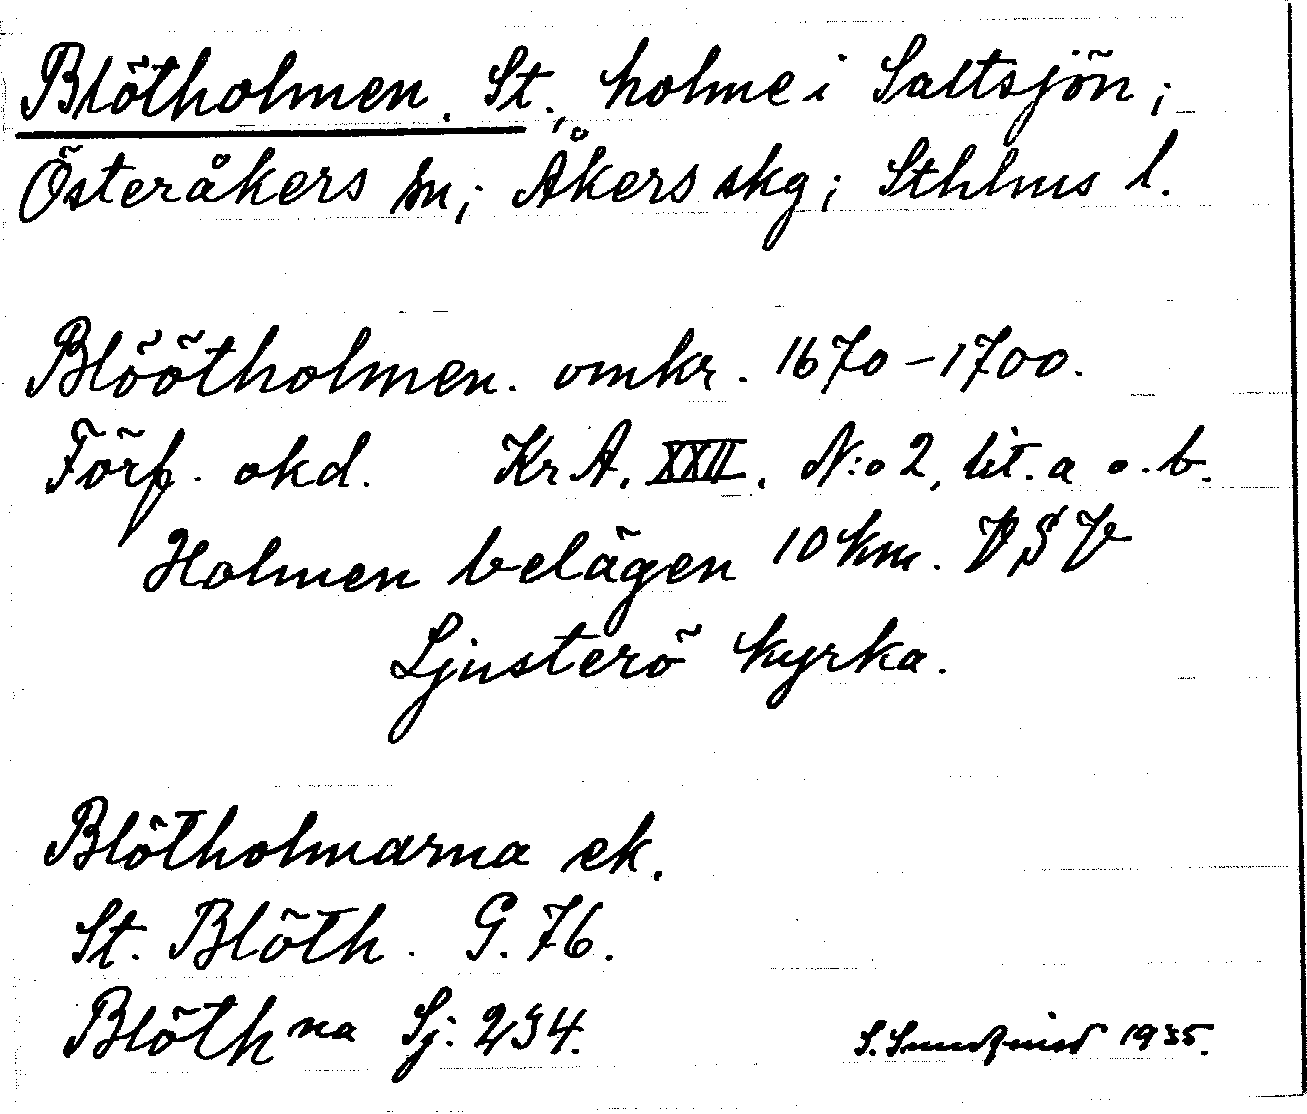 Blötholmen. St., holme i Saltsjön;
Österåkers sn; Åkers skg; Sthlms l.
Blöötholmen. omkr. 1670-1700.
Förf. okd. Kr A. XXII. N:o 2, lit. a o. b.
Holmen belägen 10 km. VSV
Ljusterö kyrka.
Blötholmarna ek.
St. Blöth. G. 76.
Blöthna Sj: 234.
S. Sundquist 1935.